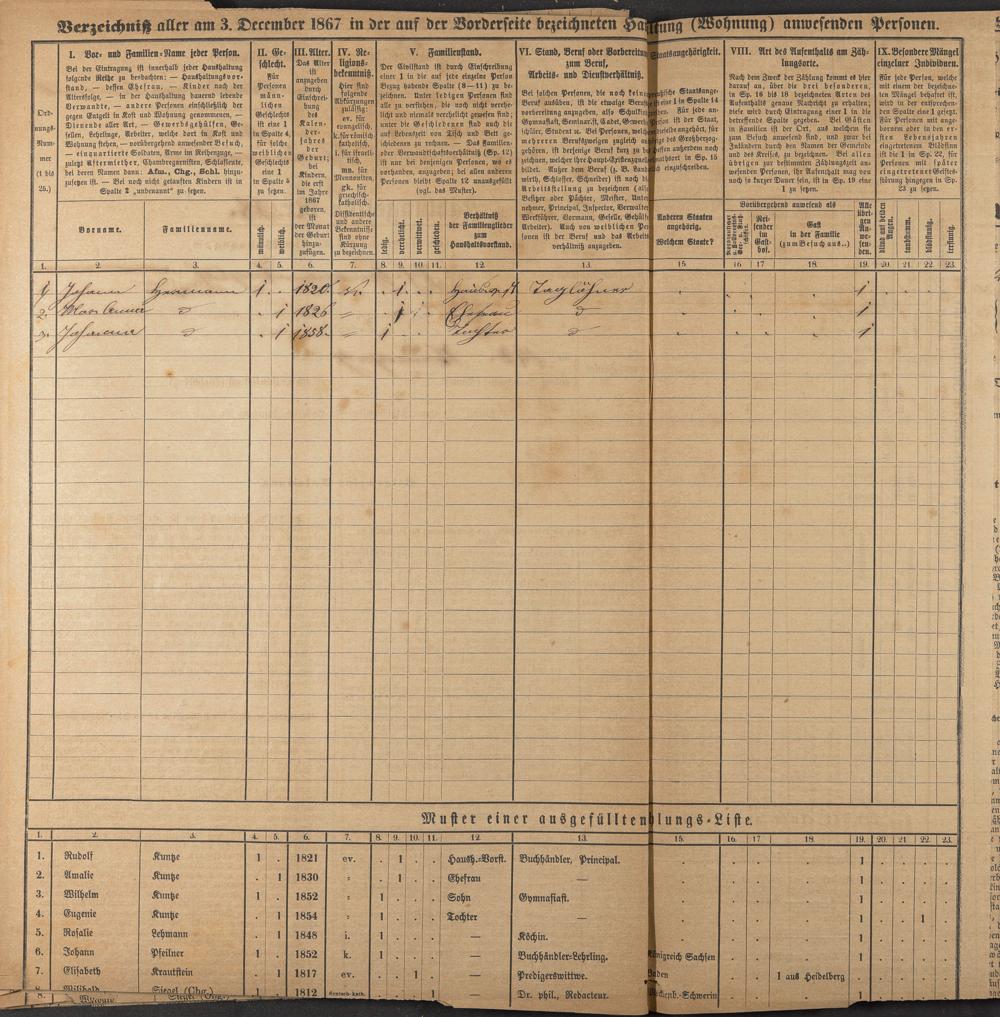 Verzeichniß aller am 3. December 1867 in der auf der Vorderseite bezeichneten Ha tung (Wohnung) anwesenden Personen.
Ord-
nungs-
Num-
mer
(1 bis
25.)
I. Vor- und Familien-Name jeder Person.
Bei der Eintragung ist innerhalb jeder Haushaltung
folgende Reihe zu beobachten: — Haushaltungsvor-
stand, — dessen Ehefrau, — Kinder nach der
Altersfolge, — in der Haushaltung dauernd lebende
Verwandte, — andere Personen einschließlich der
gegen Entgelt in Kost und Wohnung genommenen, —
Dienende aller Art, — Gewerbsgehülfen, Ge-
sellen, Lehrlinge, Arbeiter, welche dort in Kost und
Wohnung stehen, — vorübergehend anwesender Besuch,
— einquartierte Soldaten, Arme im Reihenzuge, —
zuletzt Aftermiether, Chambregarnisten, Schlafleute
bei deren Namen dann: Afm., Chg., Schl. hinzu-
zusetzen ist. — Bei noch nicht getauften Kindern ist in
Spalte 2 „unbenannt" zu setzen.
Vorname.
Familienname.
II. Ge-
schlecht.
Für
Personen
männ-
lichen
Geschlechts
ist eine 1
in Spalte 4,
für
weiblichen
Geschlechts
eine 1
in Spalte 5
zu setzen.
männlich.
weiblich.
III. Alter.
Das Alter
ist
anzugeben
durch
Einschrei-
bung
des
Kalen-
der-
jahres
der
Geburt;
bei
Kindern,
die erst
im Jahre
1867
geboren,
ist
der Monat
der Geburt
hinzu-
zufügen.
IV. Re-
ligions-
bekenntniß.
Hier sind
folgende
Abkürzungen
zulässig:
ev. für
evangelisch,
k. für römisch
katholisch,
i. für israeli-
tisch,
mn. für
Mennoniten,
gk. für
griechisch-
katholisch.
Dissidentische
und andere
Bekenntnisse
sind ohne
Kürzung
zu bezeichnen.
V. Familienstand.
Der Civilstand ist durch Einschreibung
einer 1 in die auf jede einzelne Person
Bezug habende Spalte (8—11) zu be-
zeichnen. Unter ledigen Personen sind
alle zu verstehen, die noch nicht verehe-
licht und niemals verehelicht gewesen sind;
unter die Geschiedenen sind auch die
auf Lebenszeit von Tisch und Bett ge-
schiedenen zu rechnen. — Das Familien-
oder Verwandtschaftsverhältniß (Sp. 12)
ist nur bei denjenigen Personen, wo es
vorhanden, anzugeben; bei allen anderen
Personen bleibt Spalte 12 unausgefüllt
(vgl. das Muster).
ledig.
verehelicht.
verwittwet.
geschieden.
Verhältniß
der Familienglieder
zum
Haushaltsvorstand.
VI. Stand, Beruf oder Vorbereitun
zum Beruf,
Arbeits- und Dienstverhältniß.
Staatsangehörigkeit.
Anderen Staaten
angehörig.
Welchem Staate?
VIII. Art des Aufenthalts am Zäh-
lungsorte.
Nach dem Zweck der Zählung kommt es hier
darauf an, über die drei besonderen,
in Sp. 16 bis 18 bezeichneten Arten des
Aufenthalts genaue Nachricht zu erhalten;
diese wird durch Eintragung einer 1 in die
betreffende Spalte gegeben. Bei Gästen
in Familien ist der Ort, aus welchem sie
zum Besuch anwesend sind, und zwar bei
Inländern durch den Namen der Gemeinde
und des Kreises, zu bezeichnen. Bei allen
übrigen zur bestimmten Zählungszeit an-
wesenden Personen, ihr Aufenthalt mag von
noch so kurzer Dauer sein, ist in Sp. 19 eine
1 zu setzen.
Vorübergehend anwesend als
Rei-
sender
im
Gast-
hof.
Gast
in der Familie
(zum Besuch aus..)
Alle
übri-
gen
An-
we-
sen-
den.
IX. Besondere Mängel
einzelner Individuen.
Für jede Person, welche
mit einem der bezeichne-
ten Mängel behaftet ist,
wird in der entsprechen-
den Spalte eine 1 gesetzt.
Für Personen mit ange-
borenem oder in den er-
sten Lebensjahren
eingetretenem Blödsinn
ist die 1 in Sp. 22, für
Personen mit später
eingetretener Geistes-
störung hingegen in Sp.
23 zu setzen.
blind auf beiden Augen.
taubstumm.
blödsinnig.
irrsinnig.
1. 2. 3. 4. 5. 6. 7. 8. 9. 10. 11. 12. 13. 15. 16. 17. 18. 19. 20. 21. 22. 23.
1. Johann Hermann 1 . 1820 . 1 . . Taglöhner 1
2. Mar. Anna d . 1 1826 " . 1 . . Ehefrau d 1
3. Johanna d . 1 1858. " 1 . . . Tochter d 1
Muster einer ausgefüllten hlungs-Liste.
1. 2. 3. 4. 5. 6. 7. 8. 9. 10. 11. 12. 13. 15. 16. 17. 18. 19. 20. 21. 22. 23.
1. Rudolf Kuntze 1 . 1821 ev. . 1 . . Haush.-Vorst. Buchhändler, Principal. . . . . 1 . . . .
2. Amalie Kuntze . 1 1830 " . 1 . . Ehefrau — . . . . 1 . . . .
3. Wilhelm Kuntze 1 . 1852 " 1 . . . Sohn Gymnasiast. . . . . 1 . . . .
4. Eugenie Kuntze . 1 1854 " 1 . . . Tochter — . . . . 1 . . 1 .
5. Rosalie Lehmann . 1 1848 i. 1 . . . — Köchin. . . . . 1 . . . .
6. Johann Pfeilner 1 . 1852 k. 1 . . . — Buchhändler-Lehrling. Königreich Sachsen . . . 1 . . . .
7. Elisabeth Krautstein . 1 1817 ev. . . 1 . — Predigerswittwe. Baden . . 1 aus Heidelberg . . . .
8. Siegel (Chg.) 1 . 1812 Deutsch-kath. . . . 1 — Dr. phil., Redacteur. Mecklenb.-Schwerin . . . 1 . . . .